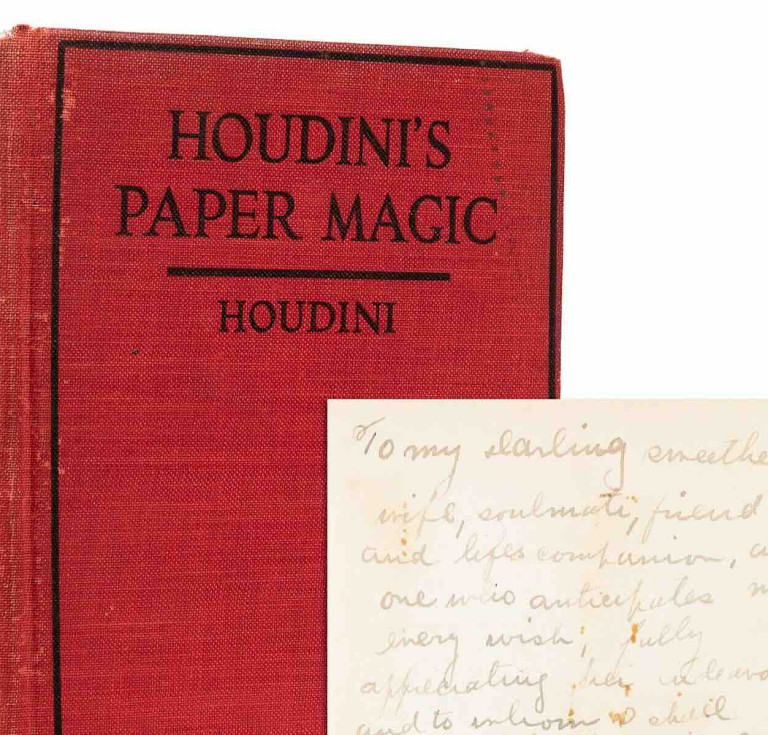 HOUDINI'S
PAPER MAGIC
HOUDINI
To my darling sweethe
wife, soulmate, friend
and lifes companion, a
one who anticipates m
every wish, fully
appreciating her
and to whom I shall